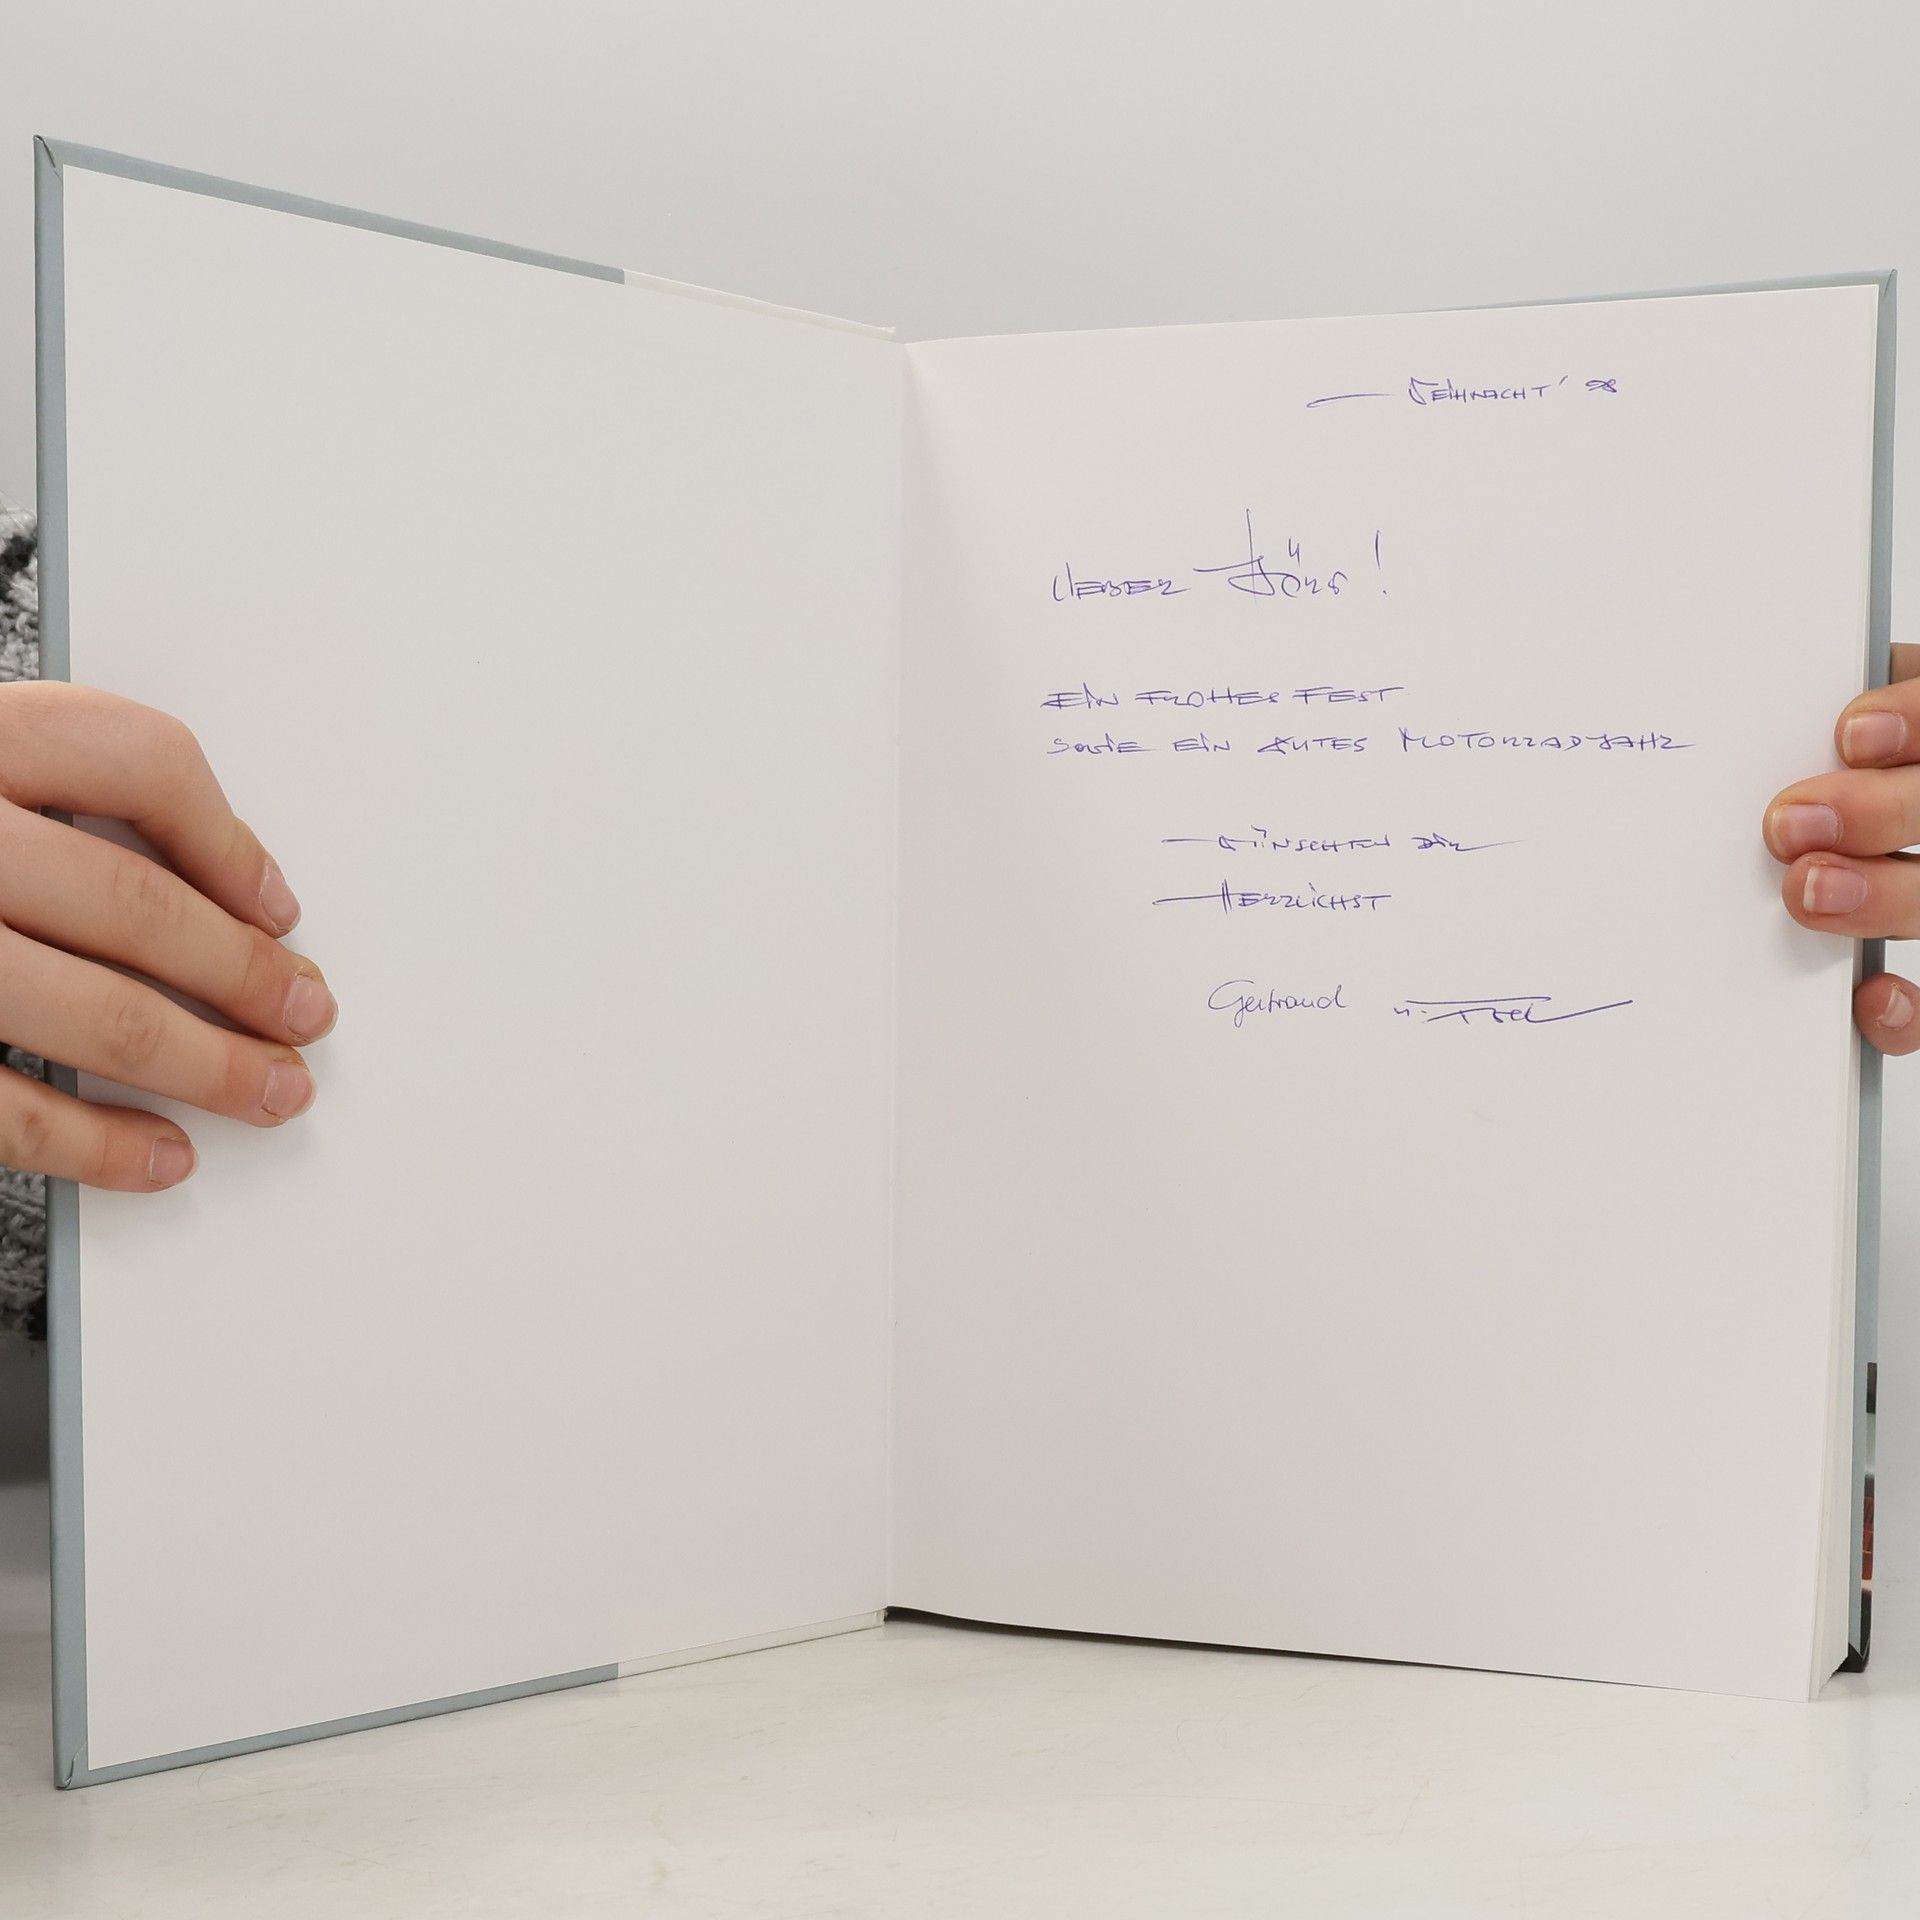 Weihnacht' 98
Lieber Jörg!
Ein frohes Fest
sowie ein gutes Motorradjahr
wünschen Dir
Herzlichst
Gertraud u.